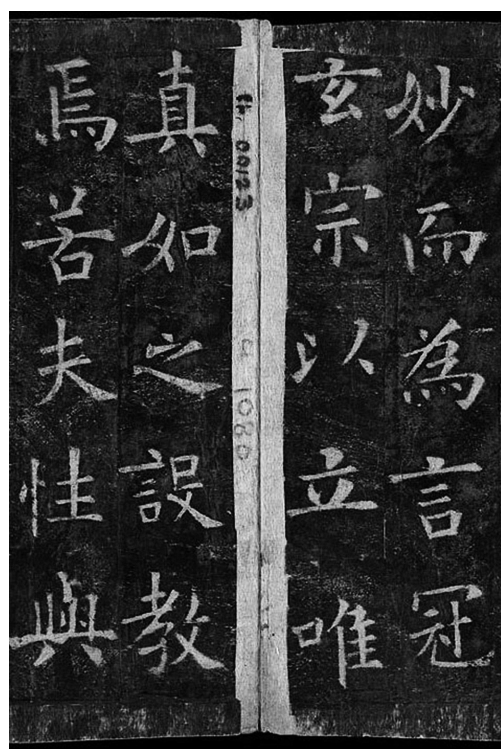 妙而為言冠
玄宗以立唯
真如之設教
焉若夫性與
Ch. 00123
1080